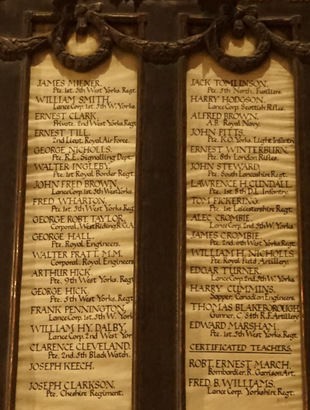 JAMES MILNER.
Pte. 5th West Yorks. Regt.
WILLIAM SMITH.
Lance Corp. 1st. 5th W. Yorks.
ERNEST CLARK.
Private. 2nd West Yorks. Regt
ERNEST TILL.
2nd Lieut. Royal Air Force.
GEORGE NICHOLLS.
Pte. R.E. Signalling Dept
WALTER INGLEBY.
Pte. 1st Royal Border Regt.
JOHN FRED BROWN.
Lance Corp. 1st. 5th West Yorks
FRED WHARTON.
Pte. 1st. 5th West Yorks. Regt
GEORGE ROBT. TAYLOR.
Corporal. West Riding R.G.A.
GEORGE HALL.
Pte. Royal Engineers.
WALTER PRATT. M.M.
Corporal. Royal Engineers
ARTHUR HICK
Pte. 9th West Yorks. Regt.
GEORGE HICK.
Pte. 5th West Yorks. Regt.
FRANK PENNINGTON.
Lance Corp. 1st. 5th W. Yorks
WILLIAM HY. DALBY.
Lance Corp. 2nd West Yor
CLARENCE CLEVELAND.
Pte. 2nd. 5th Black Watch.
JOSEPH KEECH.
JOSEPH CLARKSON.
Pte. Cheshire Regiment.
JACK TOMLINSON.
Pte. 5th North. Fusiliers
HARRY HODGSON.
Lance Corp. Scottish Rifles.
ALFRED BROWN.
A.B. Royal Navy.
JOHN PITTS.
Pte. K.O. Yorks Light Infantry
ERNEST WINTERBURN.
Pte. 8th London Rifles.
JOHN STEWARD.
Pte. South Lancashire Regt.
LAWRENCE H. CUNDALL
Pte. 1st. 8th D.L. Infantry
TOM PICKERING.
Pte. 1st Leicestershire Regt.
ALEC CROMBIE.
Lance Corp. 2nd. 5th W. Yorks.
JAMES CROMBIE.
Pte. 2nd. 4th West Yorks. Regt
WILLIAM H. NICHOLLS
Pte. Royal Field Artillery.
EDGAR TURNER.
Lance Corp. 2nd. 5th W. Yorks.
HARRY CUMMINS.
Sapper. Canadian Engineers
THOMAS BLAKEBOROUGH
Gunner. C. 38th R.F. Artillery
EDWARD MARSHAM.
Pte. 1st. 5th West Yorks. Regt
CERTIFICATED TEACHERS.
ROBT. ERNEST MARCH.
Bombardier. R. Garrison Art.
FRED. B. WILLIAMS.
Lance Corp. Yorkshire Regt.